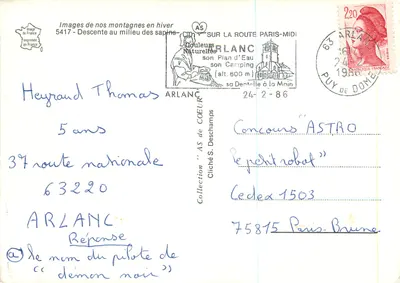 Images de nos montagnes en hiver
5417 - Descente au milieu des sapins
AS
Couleurs
Naturelles
SUR LA ROUTE PARIS-MIDI
ARLANC
son Plan d'Eau
son Camping
(alt. 600 m)
sa Dentelle à la Main
ARLANC
24-2-86
63 ARLANC
1986
PUY DE DOME
2,20
Heyraud Thomas
5 ans
37 route nationale
63220
ARLANC
Réponse
a le nom du pilote de
"démon noir"
Collection "AS de CŒUR"
Cliché S. Deschamps
Concours "ASTRO
le petit robot"
Cedex 1503
75815 Paris Brune